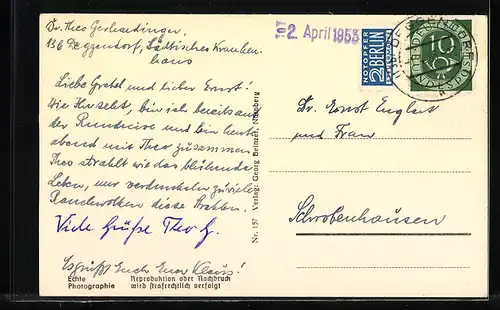 Dr. Theo Gerhardinger
13b Deggendorf, Städtisches Kranken-
haus
Liebe Gretel und lieber Ernst!
Wie Ihr seht, bin ich bereits auf
der Rundreise und bin heute
abend mit Theo zusammen.
Theo strahlt wie das blühende
Leben, nur verdunkeln zuviele
Rauchwolken diese Strahlen.
Viele Grüße Theo G.
Es grüßt Euch Euer Klaus!
Echte
Photographie
Reproduktion oder Nachdruck
wird strafrechtlich verfolgt
Nr. 157 Verlag: Georg Nürnberg
2. April 1953
NOTOPFER
2 BERLIN
STEUERMARKE
10
DEUTSCHE
BUNDESPOST
Dr. Ernst Englert
und Frau
Schrobenhausen